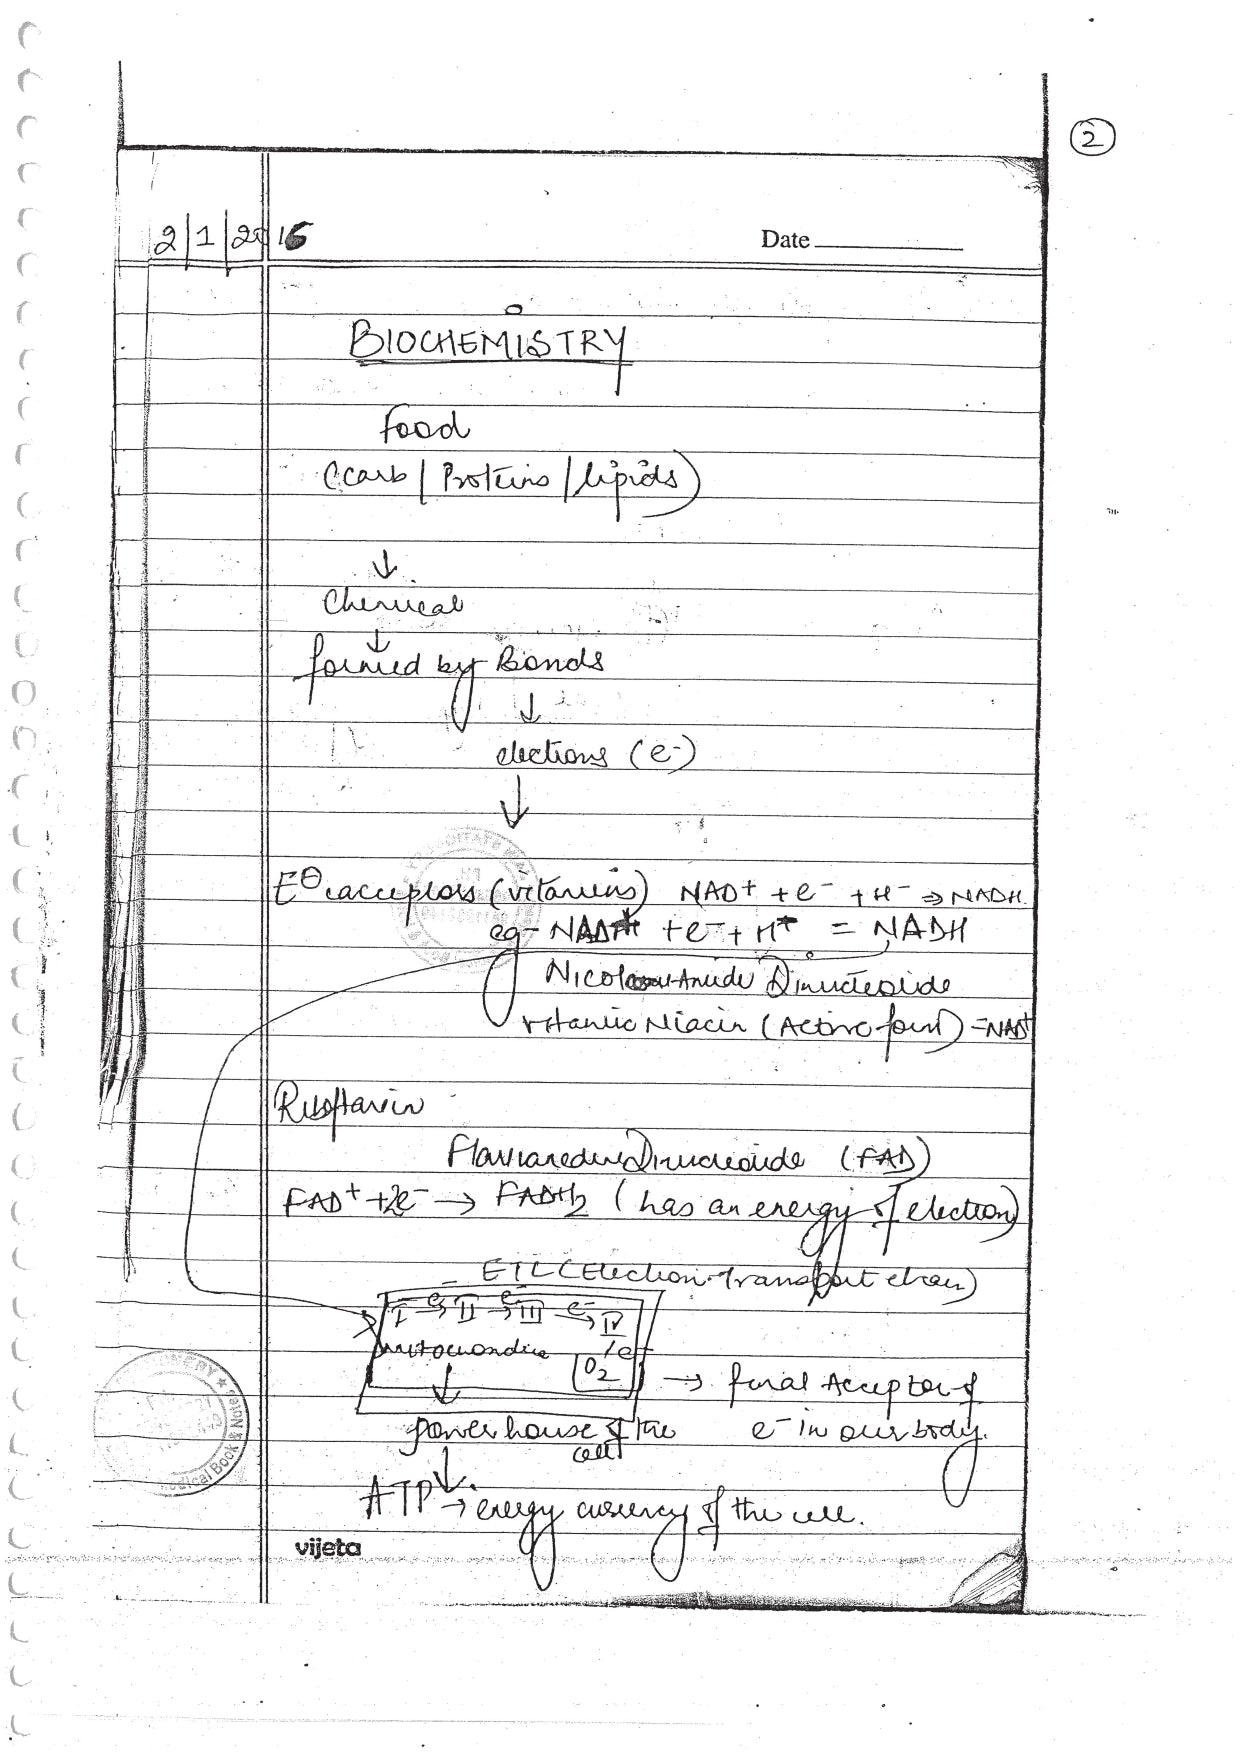 2
2/1/2016
Date
BIOCHEMISTRY
Food
(carb / Proteins / lipids)
↓
Chemical
↓
formed by Bonds
↓
electrons (e-)
↓
E⊖ acceptors (vitamins) NAD+ + e- + H- ⇒ NADH.
eg- NAD+ + e- + H+ = NADH
Dinucleotide
vitamin Niacin (Active form) = NAD+
Riboflavin
Dinucleotide (FAD)
FAD+ + 2e- → FADH2 (has an energy of electron)
ETC (Electron Transport chain)
I e-→ II e-→ III e-→ IV
mitochondria e-
O2 → final Acceptor of
↓
power house of the e- in our body.
cell
↓
ATP → energy currency of the cell.
vijeta
Medical Book & Notes